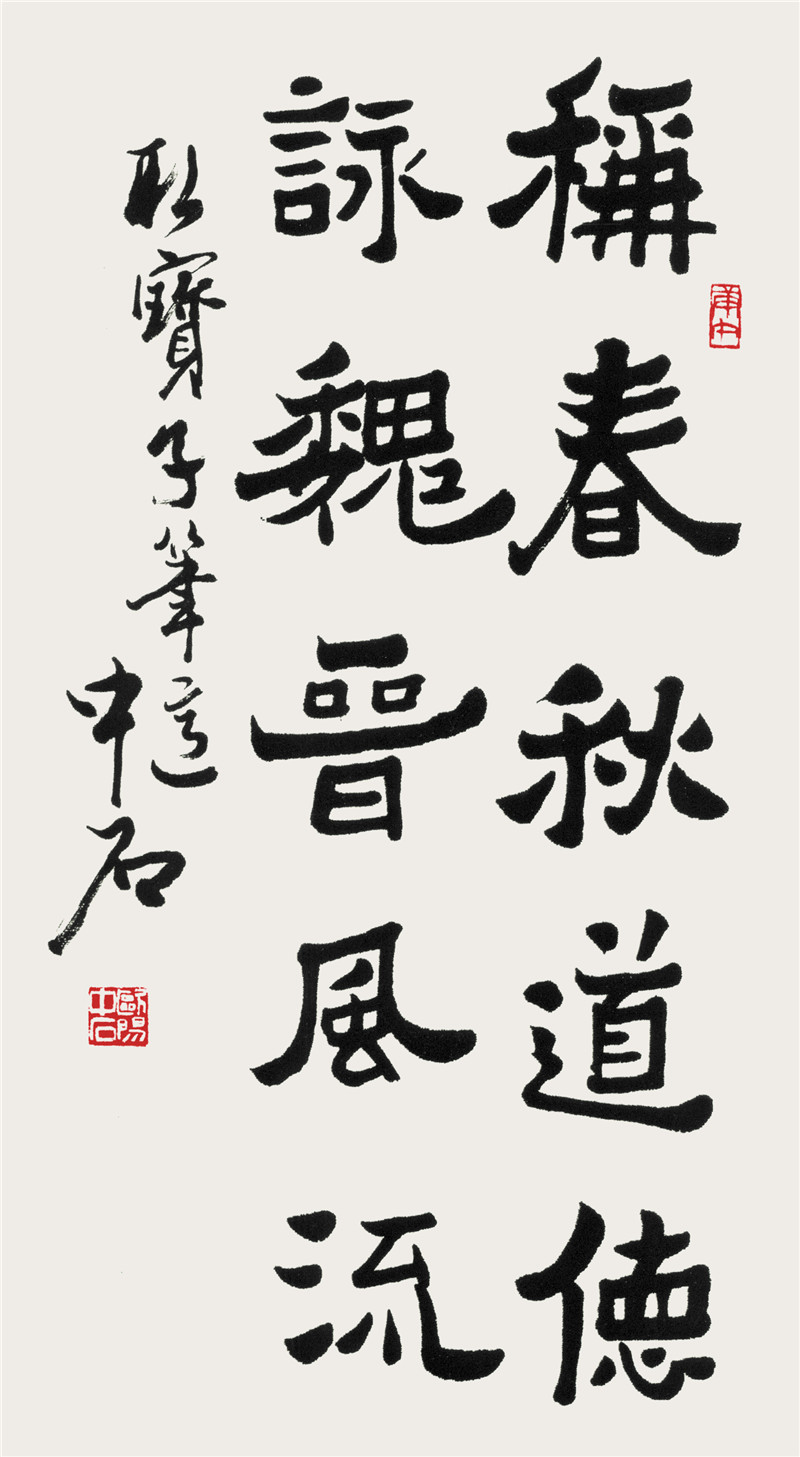 稱春秋道德
詠魏晉風流
取寶子筆意
中石
歐陽中石